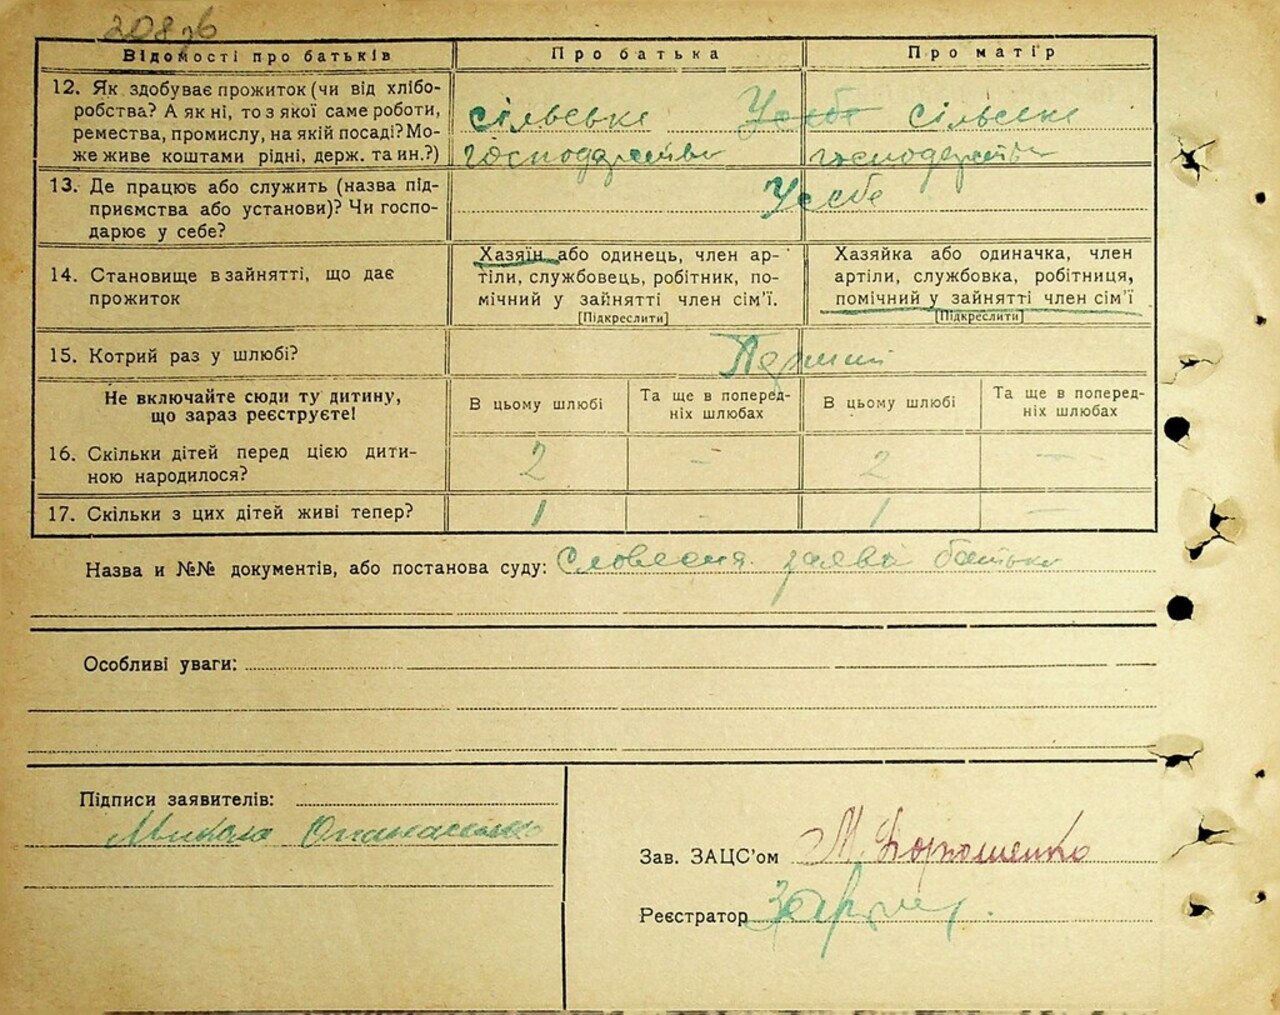 208зв
Відомості про батьків Про батька Про матір
12. Як здобуває прожиток (чи від хлібо-
робства? А як ні, то з якої саме роботи,
ремества, промислу, на якій посаді? Мо-
же живе коштами рідні, держ. та ин.?)
сільське Усебе сільське
господарство господарство
13. Де працює або служить (назва під-
приємства або установи)? Чи госпо-
дарює у себе?
Усебе
14. Становище в зайнятті, що дає
прожиток
Хазяїн або одинець, член ар-
тіли, службовець, робітник, по-
мічний у зайнятті член сім’ї.
[Підкреслити]
Хазяйка або одиначка, член
артіли, службовка, робітниця,
помічний у зайнятті член сім’ї
[Підкреслити]
15. Котрий раз у шлюбі? Перший
Не включайте сюди ту дитину,
що зараз реєструєте!
В цьому шлюбі
Та ще в поперед-
ніх шлюбах
В цьому шлюбі
Та ще в поперед-
ніх шлюбах
16. Скільки дітей перед цією дити-
ною народилося?
2 - 2 -
17. Скільки з цих дітей живі тепер? 1 - 1 -
Назва и №№ документів, або постанова суду: Словесня заява батька
Особливі уваги:
Підписи заявителів:
Микола Опанасенко
Зав. ЗАЦС’ом М. Дорошенко
Реєстратор